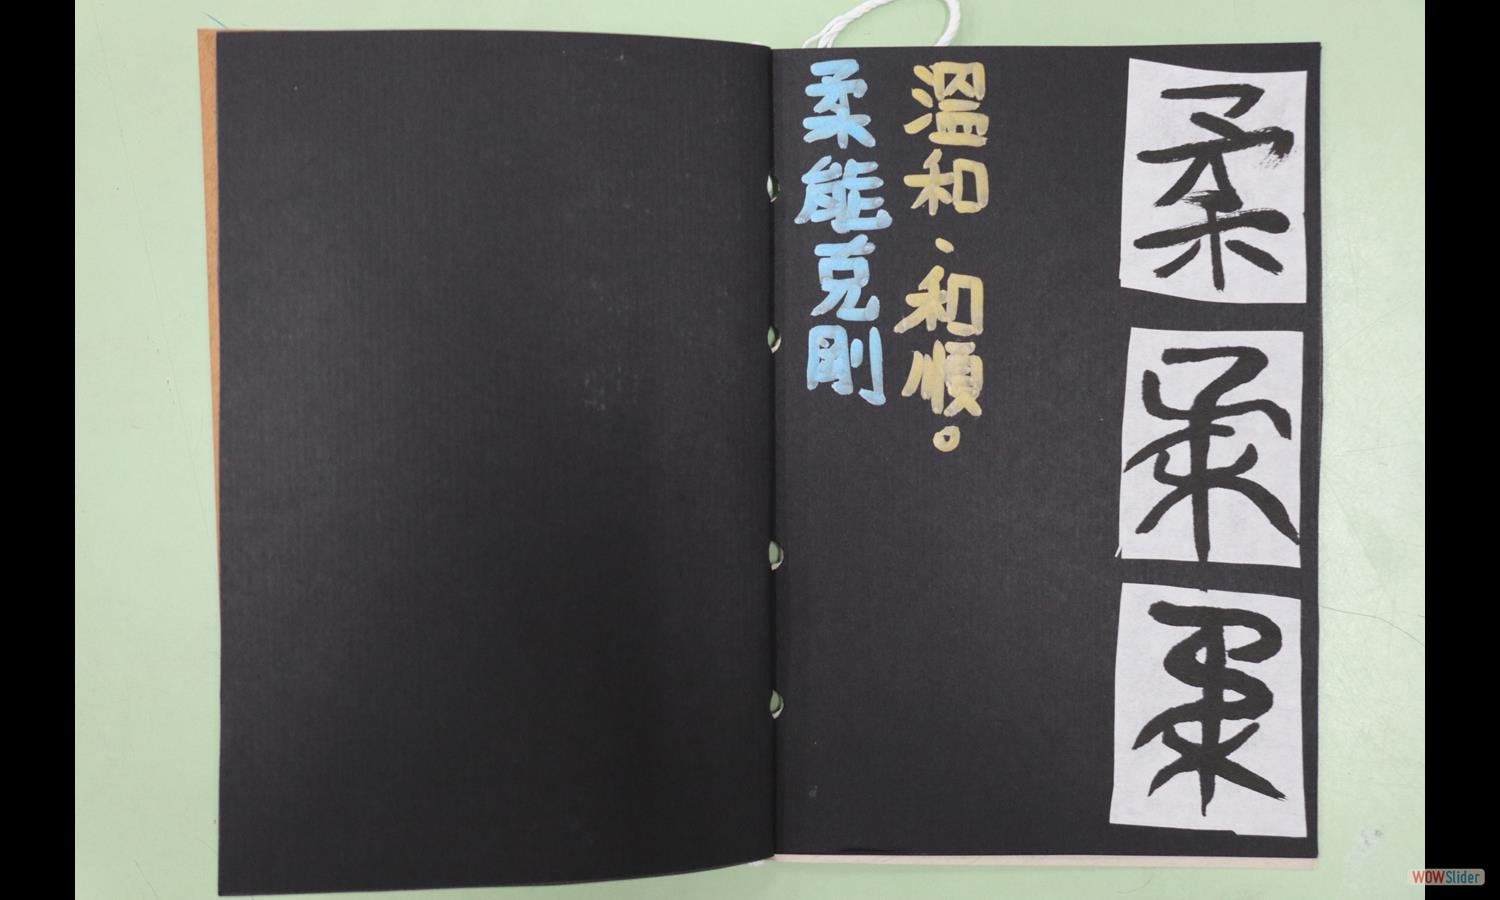 柔
柔
柔
溫和、和順。
柔能克剛
WOWSlider